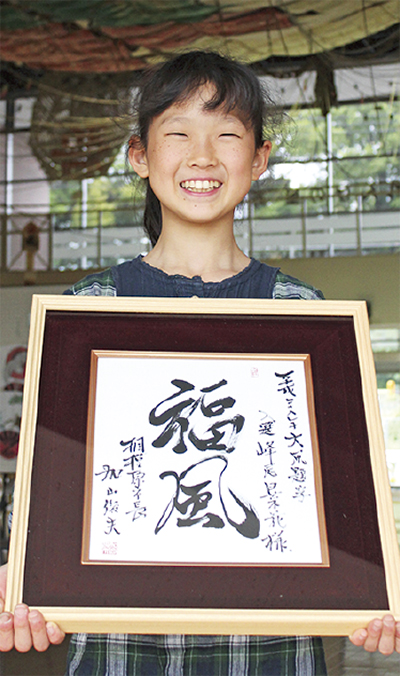 平成三〇年大凧題字
入選 峰尾 様
福風
相模原市長
加山俊夫